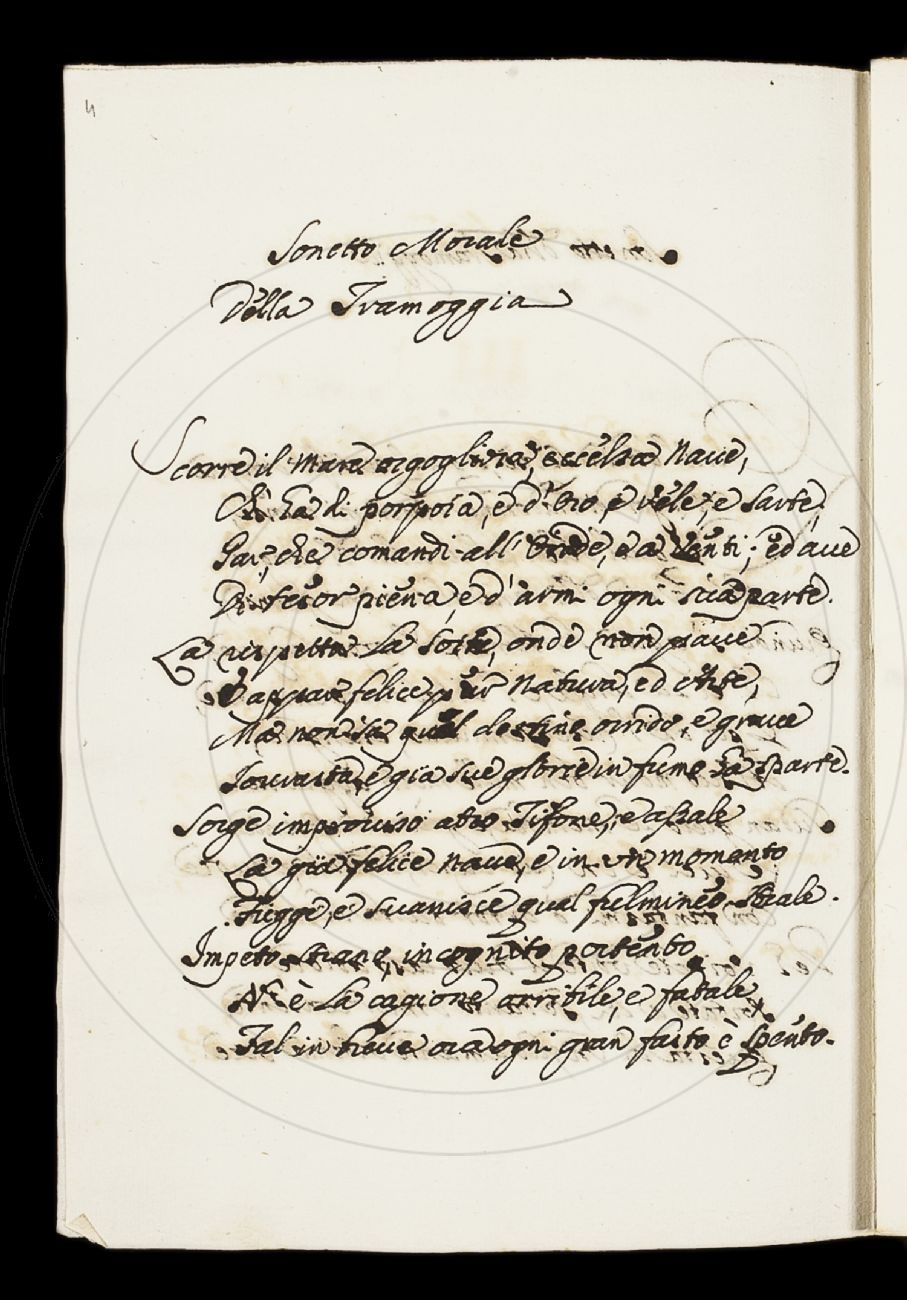 4
Sonetto Morale
Della Tramoggia
Scorre il mare orgogliosa, eccelsa Naue,
Ch' ha di porpora, e d' Oro e vele, e Sarte,
Par, che comandi all' Onde, e a Venti; ed aue
Di tesor piena, e d' armi ogni sua parte.
La rispetta la Sorte, onde non paue
E appar felice per Natura, ed Arte,
Ma non sa qual destino orrido, e graue
Souurasta, e gia sue glorie in fumo ha sparte.
Sorge improuiso atro Tifone, e assale
La gia felice Naue, e in un momento
Fugge, e suanisce qual fulmineo Strale.
Impeto strano, incognito portento
N' è la cagione orribile, e fatale
Tal in breue ora ogni gran fasto è spento.